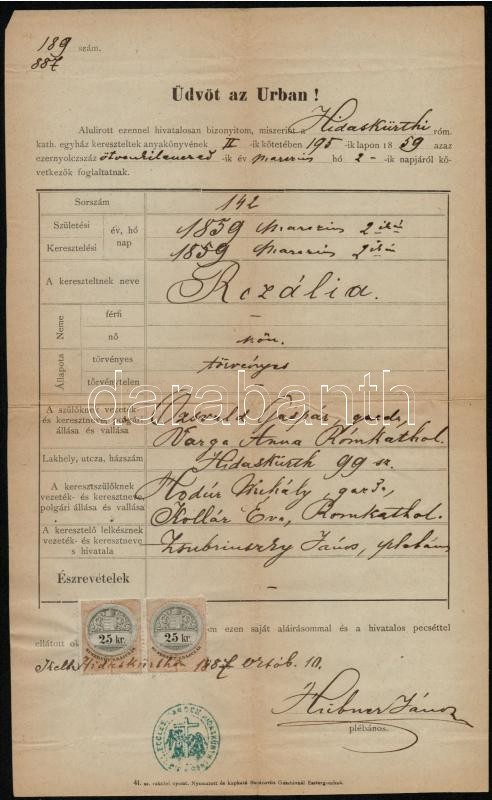 189 szám.
887
Üdvöt az Urban!
Alulirott ezennel hivatalosan bizonyitom, miszerint a Hidaskürthi róm.
kath. egyház kereszteltek anyakönyvének II -ik kötetében 195 -ik lapon 1859 azaz
ezernyolczszáz ötvenkilenczed -ik év marczius hó 2- -ik napjáról kö-
vetkezők foglaltatnak.
Sorszám 142
Születési év, hó nap 1859 Marczius 2 ikán
Keresztelési 1859 Marczius 2 ikán
A kereszteltnek neve Rozália.
Neme férfi –
nő nőn.
Állapota törvényes törvényes
törvénytelen
darabanth
A szülőknek vezeték- és keresztneve, polgári állása és vallása Gáspár, gazda,
Varga Anna Rómkathol.
Lakhely, utcza, házszám Hidaskürth 99 sz.
A keresztszülőknek vezeték- és keresztneve polgári állása és vallása Modúr Mihály, gazda,
Kollár Éva, Romkathol.
A keresztelő lelkésznek vezeték- és keresztneve s hivatala János, plebános
Észrevételek –
25 kr. 25 kr.
ezen saját aláirásommal és a hivatalos pecséttel
ellátott
Kelt Hidaskürthön 1887 Október 10.
Hübner János
plébános.
41. sz. raktári nyomt. Nyomatott és kapható Buzárovits Gusztávnál Esztergomban.